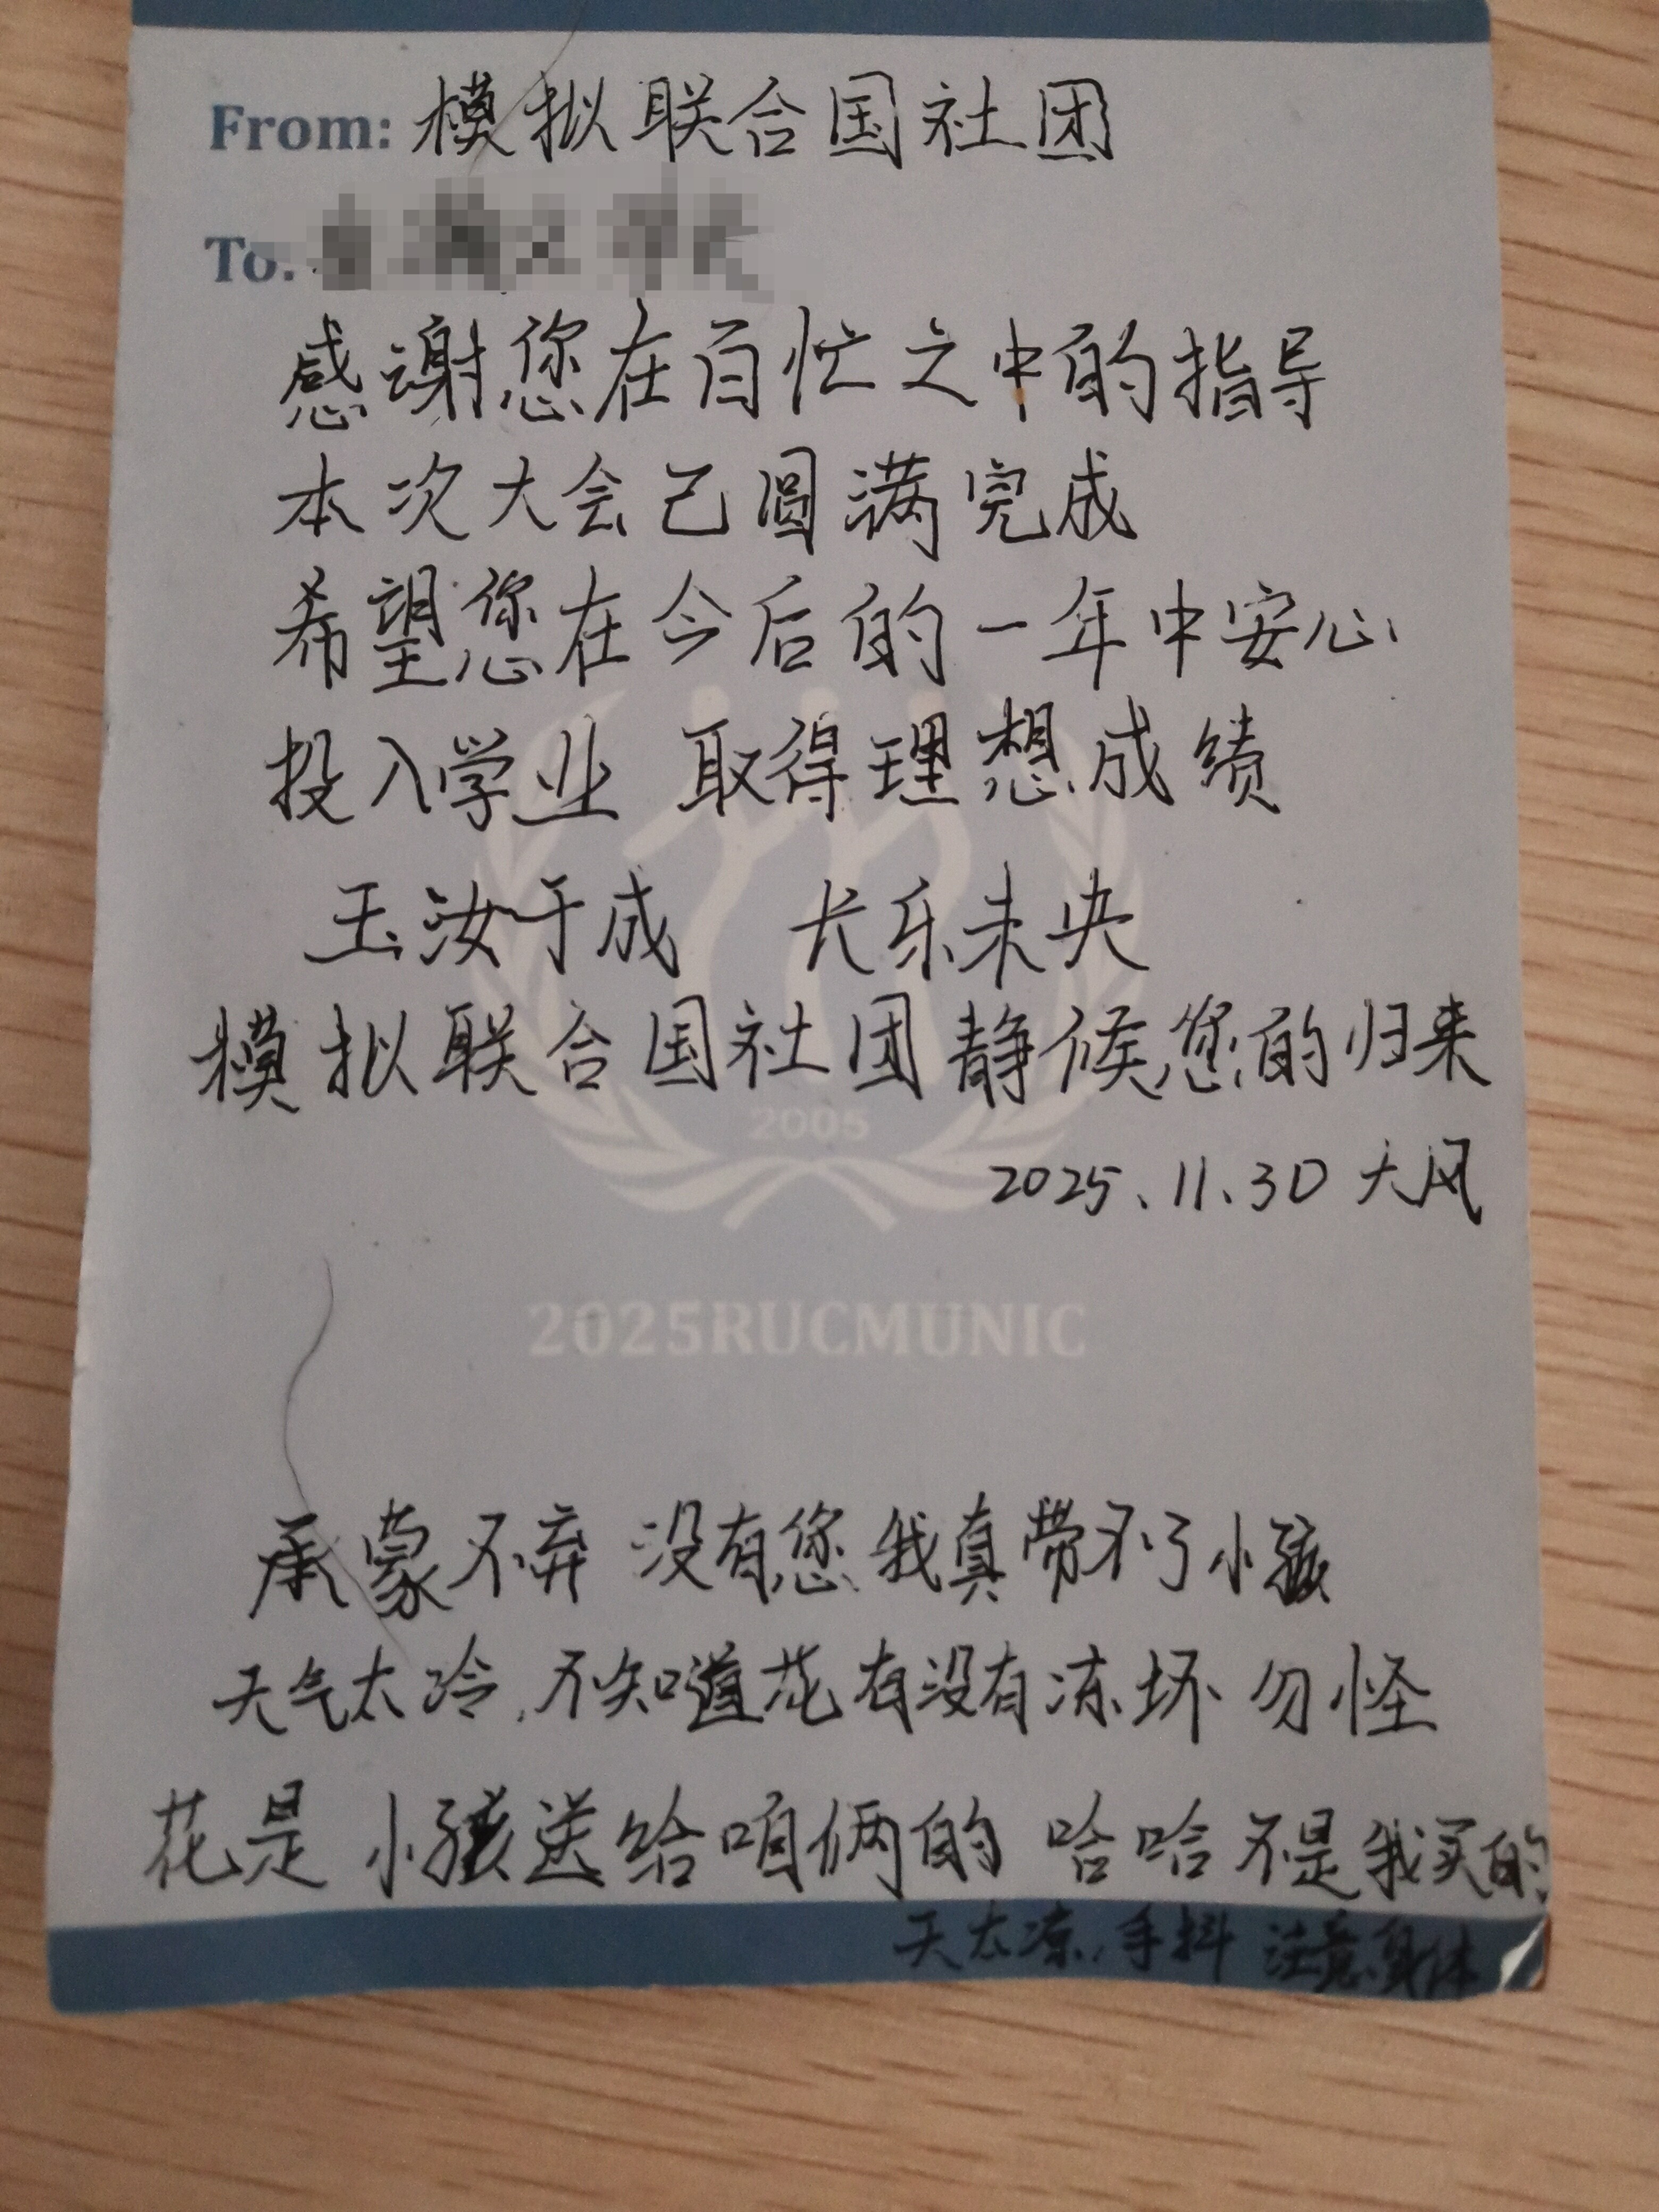 From: 模拟联合国社团
To:
感谢您在百忙之中的指导
本次大会已圆满完成
希望您在今后的一年中安心
投入学业 取得理想成绩
玉汝于成 长乐未央
模拟联合国社团静候您的归来
2005
2025.11.30 大风
2025RUCMUNIC
承蒙不弃 没有您我真带不了小孩
天气太冷,不知道花有没有冻坏 勿怪
花是小孩送给咱俩的 哈哈 不是我买的
天太凉,手抖 注意身体